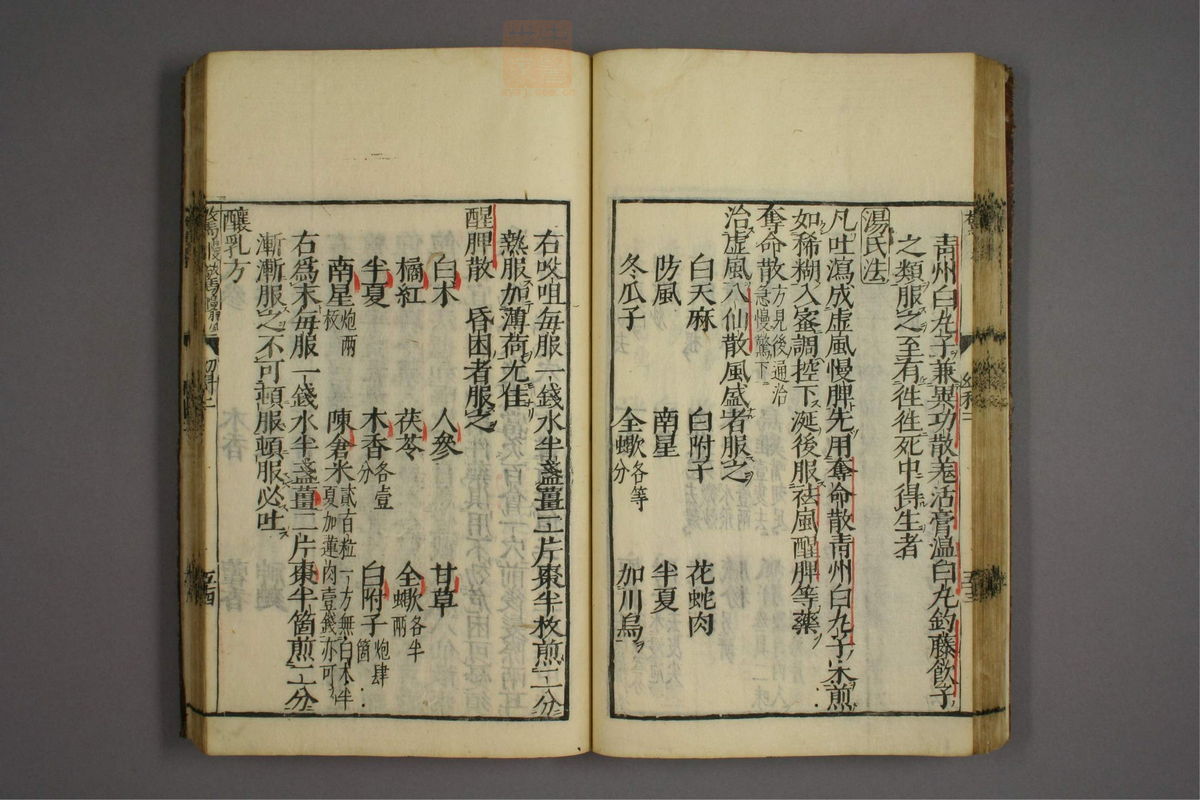 青州白丸子兼異功散羗活膏溫白丸釣藤飲子
之類服之至有徃徃死中得生者
湯氏法
凡吐瀉成虛風慢脾先用奪命散青州白丸子末煎
如稀糊入蜜調控下涎後服祛風醒脾等藥
奪命散方見後通治急慢驚下
治虛風八仙散風盛者服之
白天麻 白附子 花蛇肉
防風 南星 半夏
冬瓜子 全蠍各等分 加川烏
右㕮咀每服一錢水半盞薑二片棗半枚煎二分
熱服加薄荷尤佳
醒脾散 昏困者服之
白朮 人參 甘草
橘紅 茯苓 全蠍各半兩
半夏 木香各壹分 白附子炮肆箇
南星炮兩枚 陳倉米貳百粒一方無白朮半夏加蓮肉壹錢亦可
右爲末每服一錢水半盞薑二片棗半箇煎二分
漸漸服之不可頓服頓服必吐
釀乳方
幼科二
五四